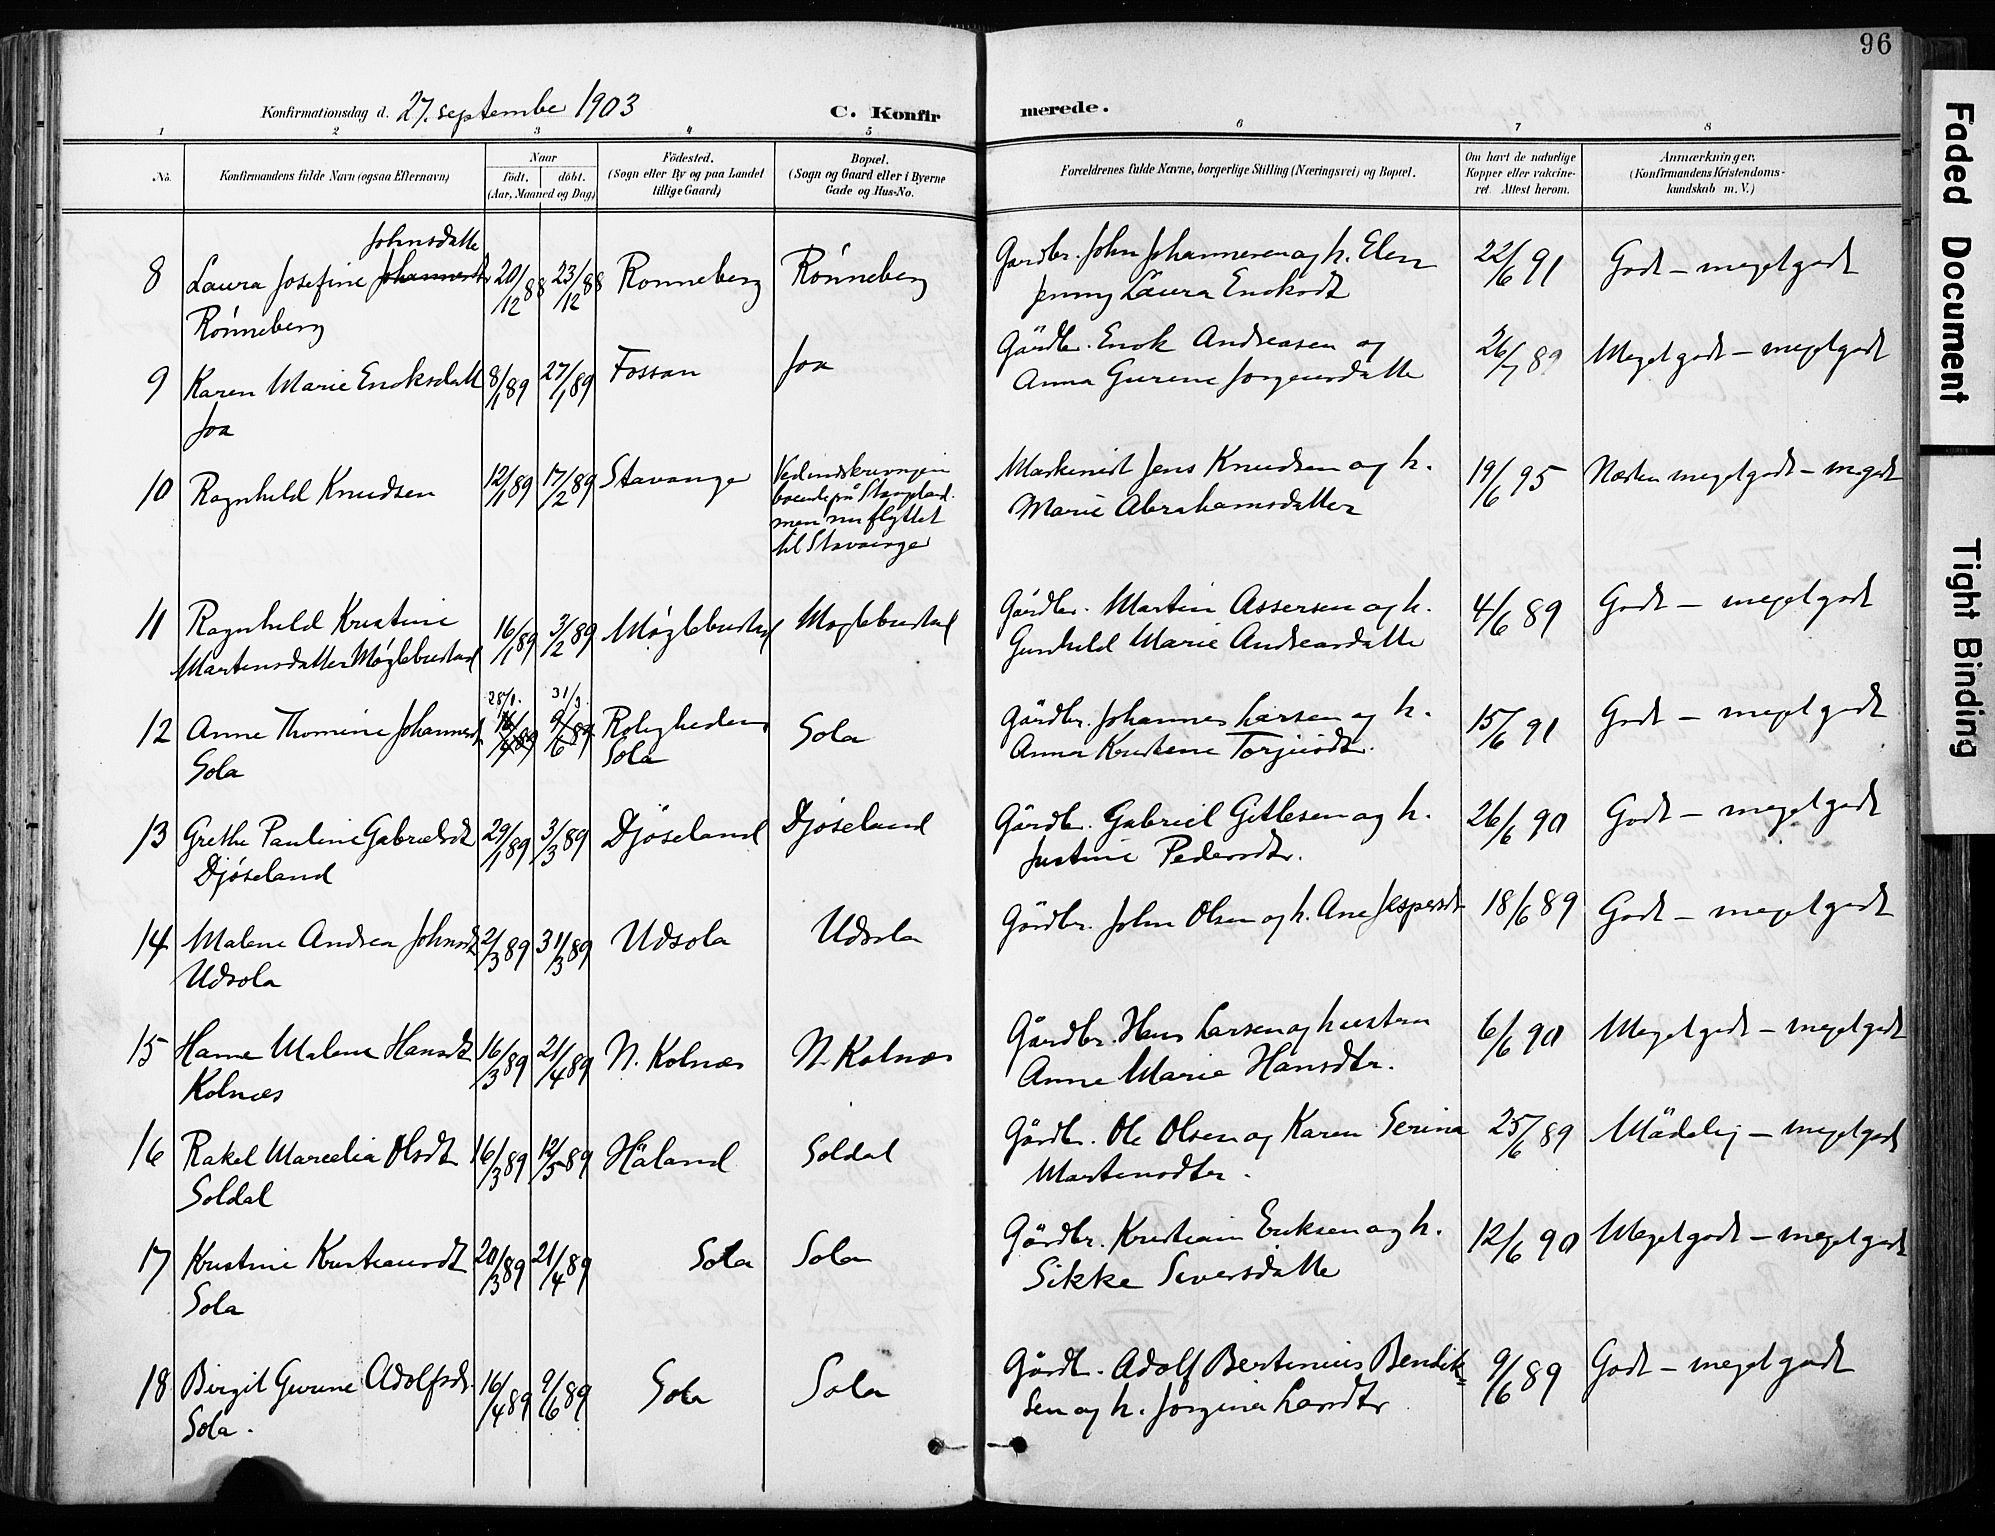 96
Faded Document
Tight Binding
Konfirmationsdag d. 27. septembe 1903
C. Konfirmerede.
1 2 3 4 5 6 7 8
No.
Konfirmandens fulde Navn (ogsaa Efternavn)
Naar
født. døbt.
(Aar, Maaned og Dag)
Födested.
(Sogn eller By og paa Landet
tillige Gaard)
Bopæl.
(Sogn og Gaard eller i Byerne
Gade og Hus-No.
Forældrenes fulde Navne, borgerlige Stilling (Næringsvei) og Bopæl.
Om havt de naturlige
Kopper eller vakcine-
ret. Attest herom.
Anmærkninger,
(Konfirmandens Kristendoms-
kundskab m. V.)
Johnsdatte
8 Laura Josefine Johannesdt 20/12 88 23/12 88 Ronneberg Rönneberg Gardbr. John Johannesen og h. Elen 22/6 91 Godt – meget godt
Rönneberg Jenny Laura Enoksdt
9 Karen Marie Enoksdatt 8/1 89 27/1 89 Fossan Joa Gårdbr. Enok Andreasen og 26/7 89 Meget godt – meget godt
Joa Anna Gurine Jørgensdatte
10 Ragnhild Knudsen 12/1 89 17/2 89 Stavanger Ved indskrivningen Maskinist Jens Knudsen og h. 19/6 95 Næsten meget godt – m. godt
boende på Stangeland. Marie Abrahamsdatter
men nu flyttet
til Stavanger
11 Ragnhild Kristine 16/1 89 3/2 89 Møglebustad Møglebustad Gårdbr. Martin Assersen og h. 4/6 89 Godt – meget godt
Martinsdatter Møglebustad Gunhild Marie Andreasdatte
28/1. 31/3.
12 Anne Thomine Johannesdt 89 9/6 89 Roligheden Sola Gårdbr. Johannes Larsen og h. 15/6 91 Godt – meget godt
Sola Sola Anna Kristine Torjusdtr.
13 Grethe Pauline Gabrielsdt 29/1 89 3/3 89 Djøseland Djøseland Gårdbr. Gabriel Gitlesen og h. 26/6 90 Godt – meget godt
Djøseland Justine Pedersdtr.
14 Malene Andrea Johnsdt 2/3 89 31/3 89 Udsola Udsola Gårdbr. John Olsen og h. Ane Jespersdt 18/6 89 Godt – meget godt
Udsola
15 Hanne Malene Hansdt 16/3 89 21/4 89 N. Kolnæs N. Kolnæs Gårdbr. Hans Larsen og hustru 6/6 90 Meget godt – meget godt
Kolnæs Anne Marie Hansdtr.
16 Rakel Marcelia Olsdt 16/3 89 12/5 89 Håland Soldal Gårdbr. Ole Olsen og Karen Serina 25/6 89 Mådelig – meget godt
Soldal Martinsdtr.
17 Kristine Kristiansdt 20/3 89 21/4 89 Sola Sola Gårdbr. Kristian Eriksen og h. 12/6 90 Meget godt – meget godt
Sola Sikke Siversdatte
18 Birgit Gurine Adolfsdt. 16/4 89 9/6 89 Sola Sola Gårdb. Adolf Bertinius Bendik= 9/6 89 Godt – meget godt
Sola. sen og h. Jorgina Larsdtr